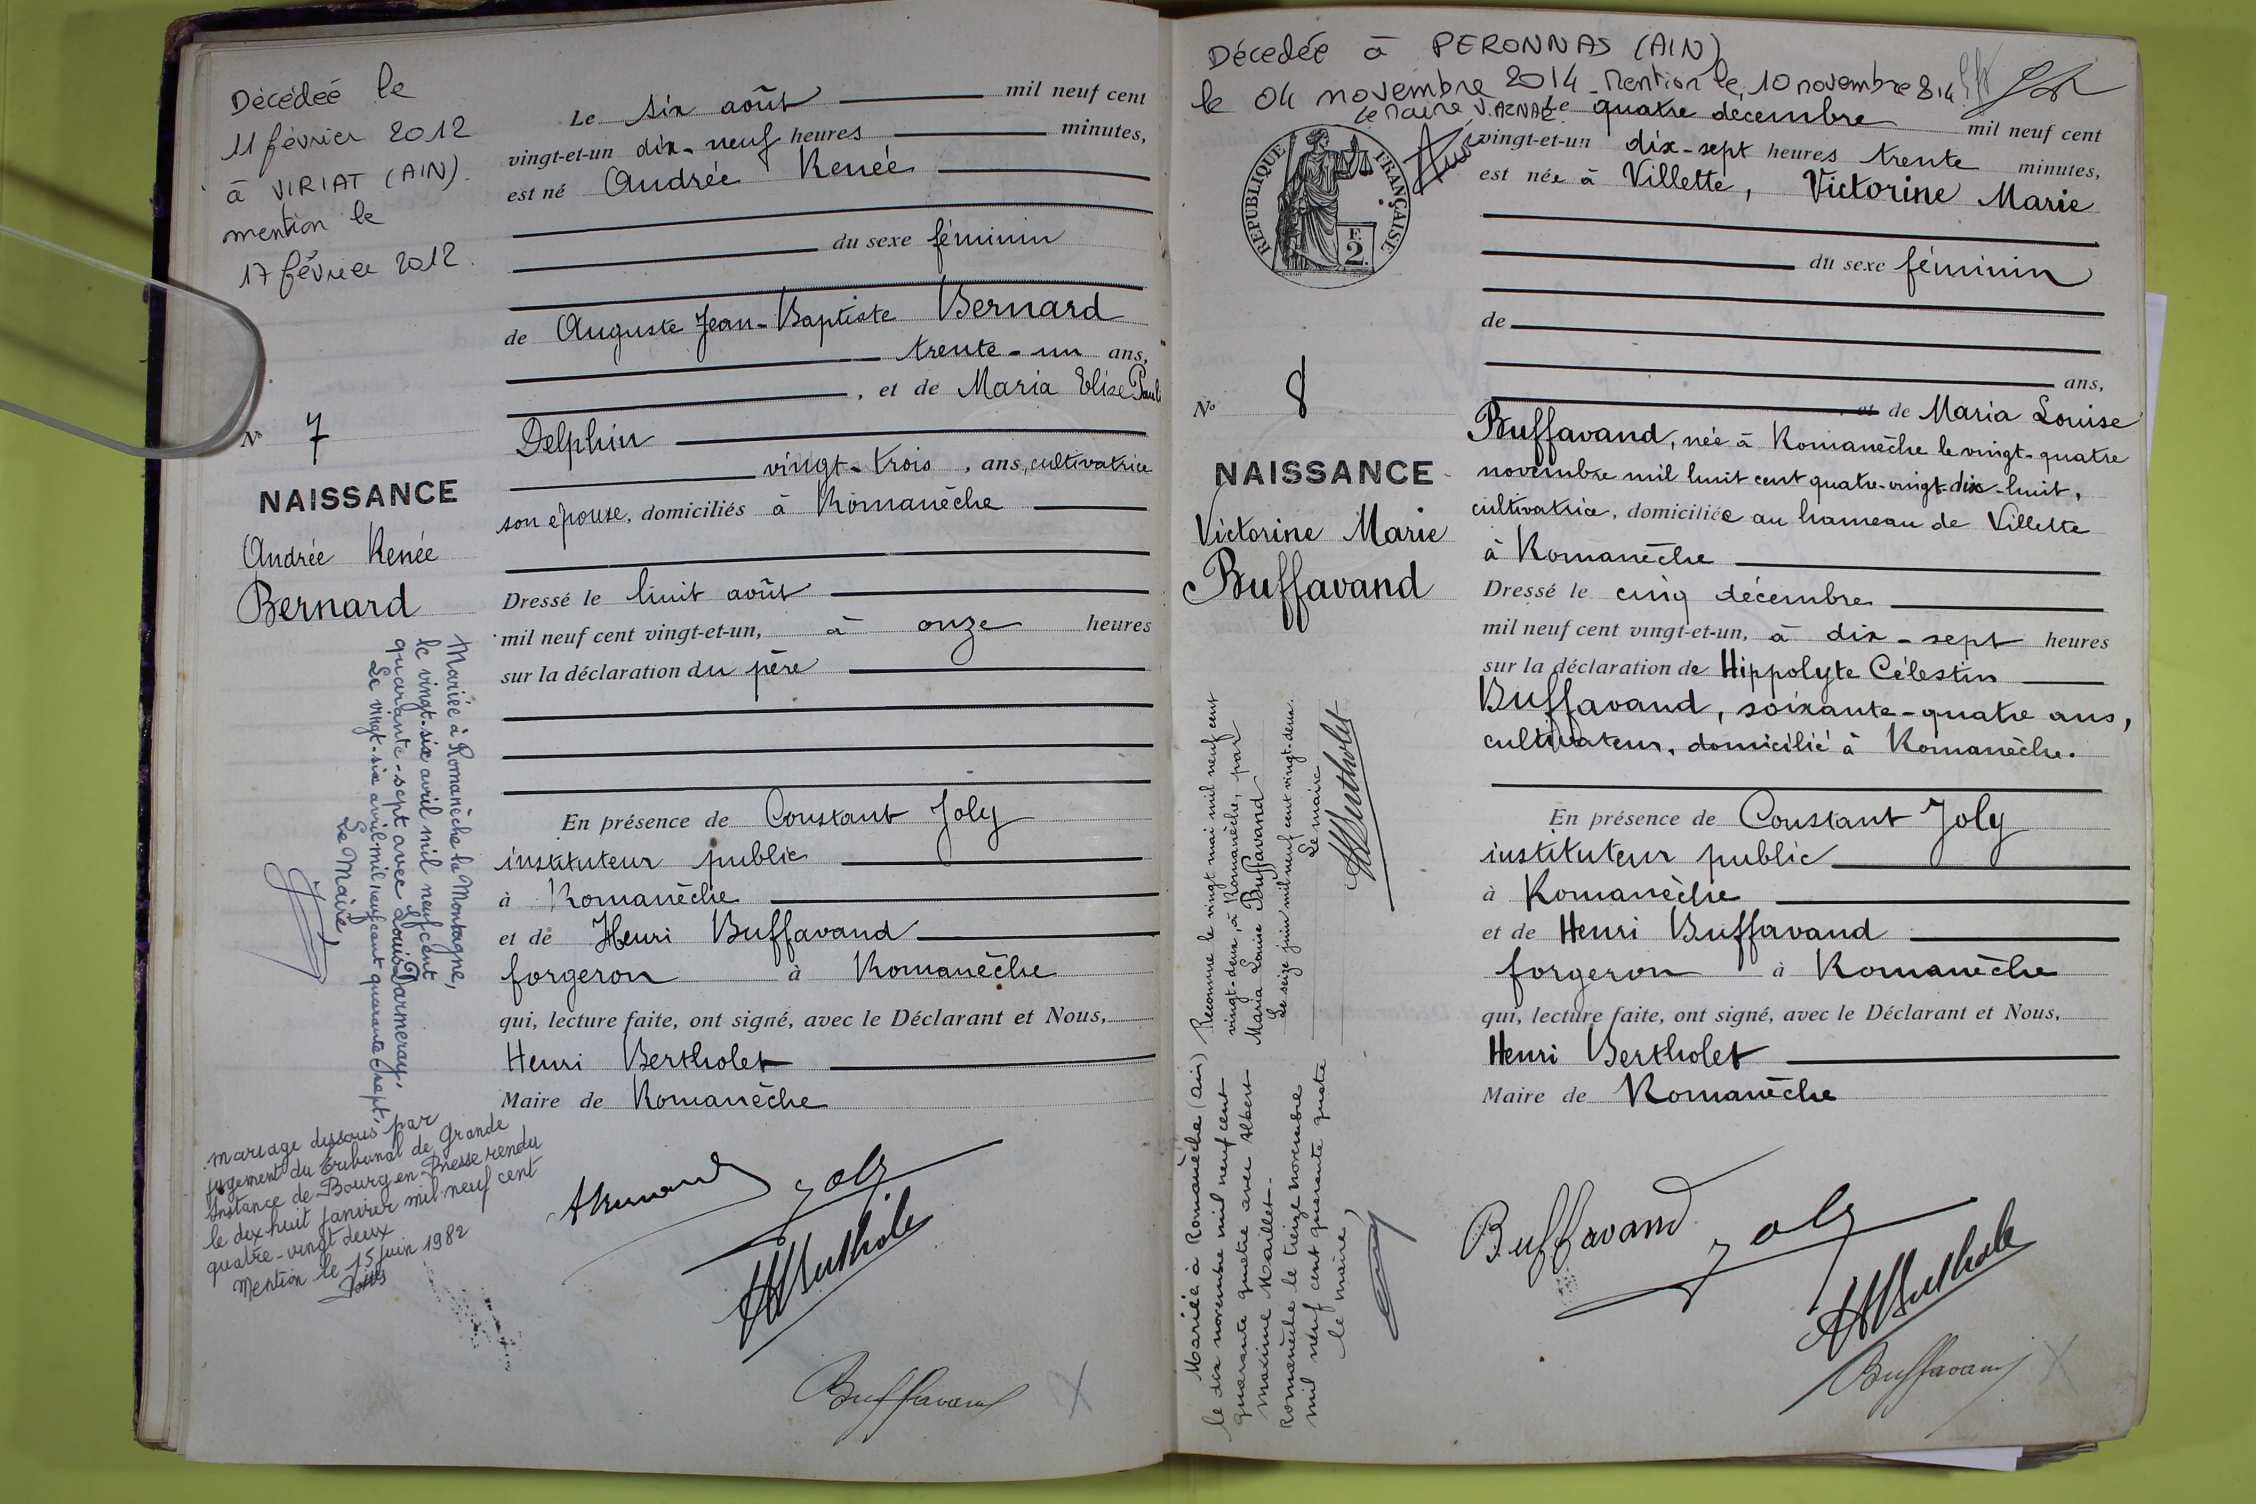 Décédée le
11 février 2012
à VIRIAT (AIN).
mention le
17 février 2012.
N° 7
NAISSANCE
Andrée Renée
Bernard
Mariée à Romanèche la Montagne,
le vingt-six avril mil neuf cent
quarante-sept avec Louis Darmeray.
Le vingt-six avril mil neuf cent quarante sept,
Le Maire,
mariage dissous par
jugement du tribunal de Grande
Instance de Bourg en Bresse rendu
le dix huit janvier mil neuf cent
quatre-vingt deux
Mention le 15 juin 1982
Le six août mil neuf cent
vingt-et-un dix-neuf heures minutes,
est né Andrée Renée
du sexe féminin
de Auguste Jean-Baptiste Bernard
trente-un ans,
, et de Maria Elise Paul
Delphin
vingt-trois, ans, cultivatrice
son épouse, domiciliés à Romanèche
Dressé le huit août
mil neuf cent vingt-et-un, à onze heures
sur la déclaration du père
En présence de Constant Joly
instituteur public
à Romanèche
et de Henri Buffavand
forgeron à Romanèche
qui, lecture faite, ont signé, avec le Déclarant et Nous,
Henri Bertholet
Maire de Romanèche
ABernard
Joly
HBertholet
Buffavand
Décédée à PERONNAS (AIN)
le 04 novembre 2014 - Mention le 10 novembre 2014
Le Maire
RÉPUBLIQUE FRANÇAISE
F.
2.
N° 8
NAISSANCE
Victorine Marie
Buffavand
Reconnue le vingt mai mil neuf cent
vingt-deux, à Romanèche, par
Maria Louise Buffavand
Le seize juin mil neuf cent vingt-deux.
Le maire
HBertholet
Mariée à Romanèche (Ain)
le dix novembre mil neuf cent
quarante quatre avec Albert
Maxime Maillet.
Romanèche le treize novembre
mil neuf cent quarante quatre
le maire,
Le quatre décembre mil neuf cent
vingt-et-un dix-sept heures trente minutes,
est née à Villette, Victorine Marie
du sexe féminin
de
ans,
et de Maria Louise
Buffavand, née à Romanèche le vingt-quatre
novembre mil huit cent quatre-vingt-dix-huit,
cultivatrice, domiciliée au hameau de Villette
à Romanèche
Dressé le cinq décembre
mil neuf cent vingt-et-un, à dix-sept heures
sur la déclaration de Hippolyte Célestin
Buffavand, soixante-quatre ans,
cultivateur, domicilié à Romanèche.
En présence de Constant Joly
instituteur public
à Romanèche
et de Henri Buffavand
forgeron à Romanèche
qui, lecture faite, ont signé, avec le Déclarant et Nous,
Henri Bertholet
Maire de Romanèche
Buffavand
Joly
HBertholet
Buffavand